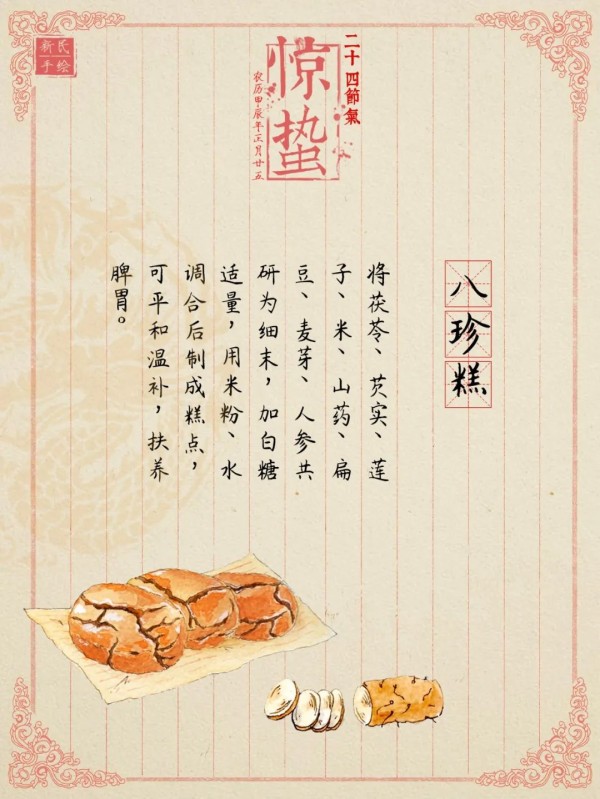 新民
手绘
二十四節氣
惊蛰
农历甲辰年正月廿五
八珍糕
将茯苓、芡实、莲
子、米、山药、扁
豆、麦芽、人参共
研为细末，加白糖
适量，用米粉、水
调合后制成糕点，
可平和温补，扶养
脾胃。